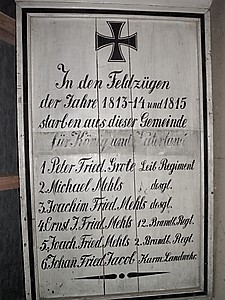 In den Feldzügen
der Jahre 1813-14 und 1815
starben aus dieser Gemeinde
für König und Vaterland
1 Peter Fried. Grote Leib Regiment
2 Michael Mehls desgl.
3 Joachim Fried. Mehls dosgl.
4 Ernst J. Fried. Mehls 12. Brandb. Regt.
5 Joach. Fried. Mehls 2. Brandb. Regt.
6 Johan Fried. Jacob Kurm. Landwehr.